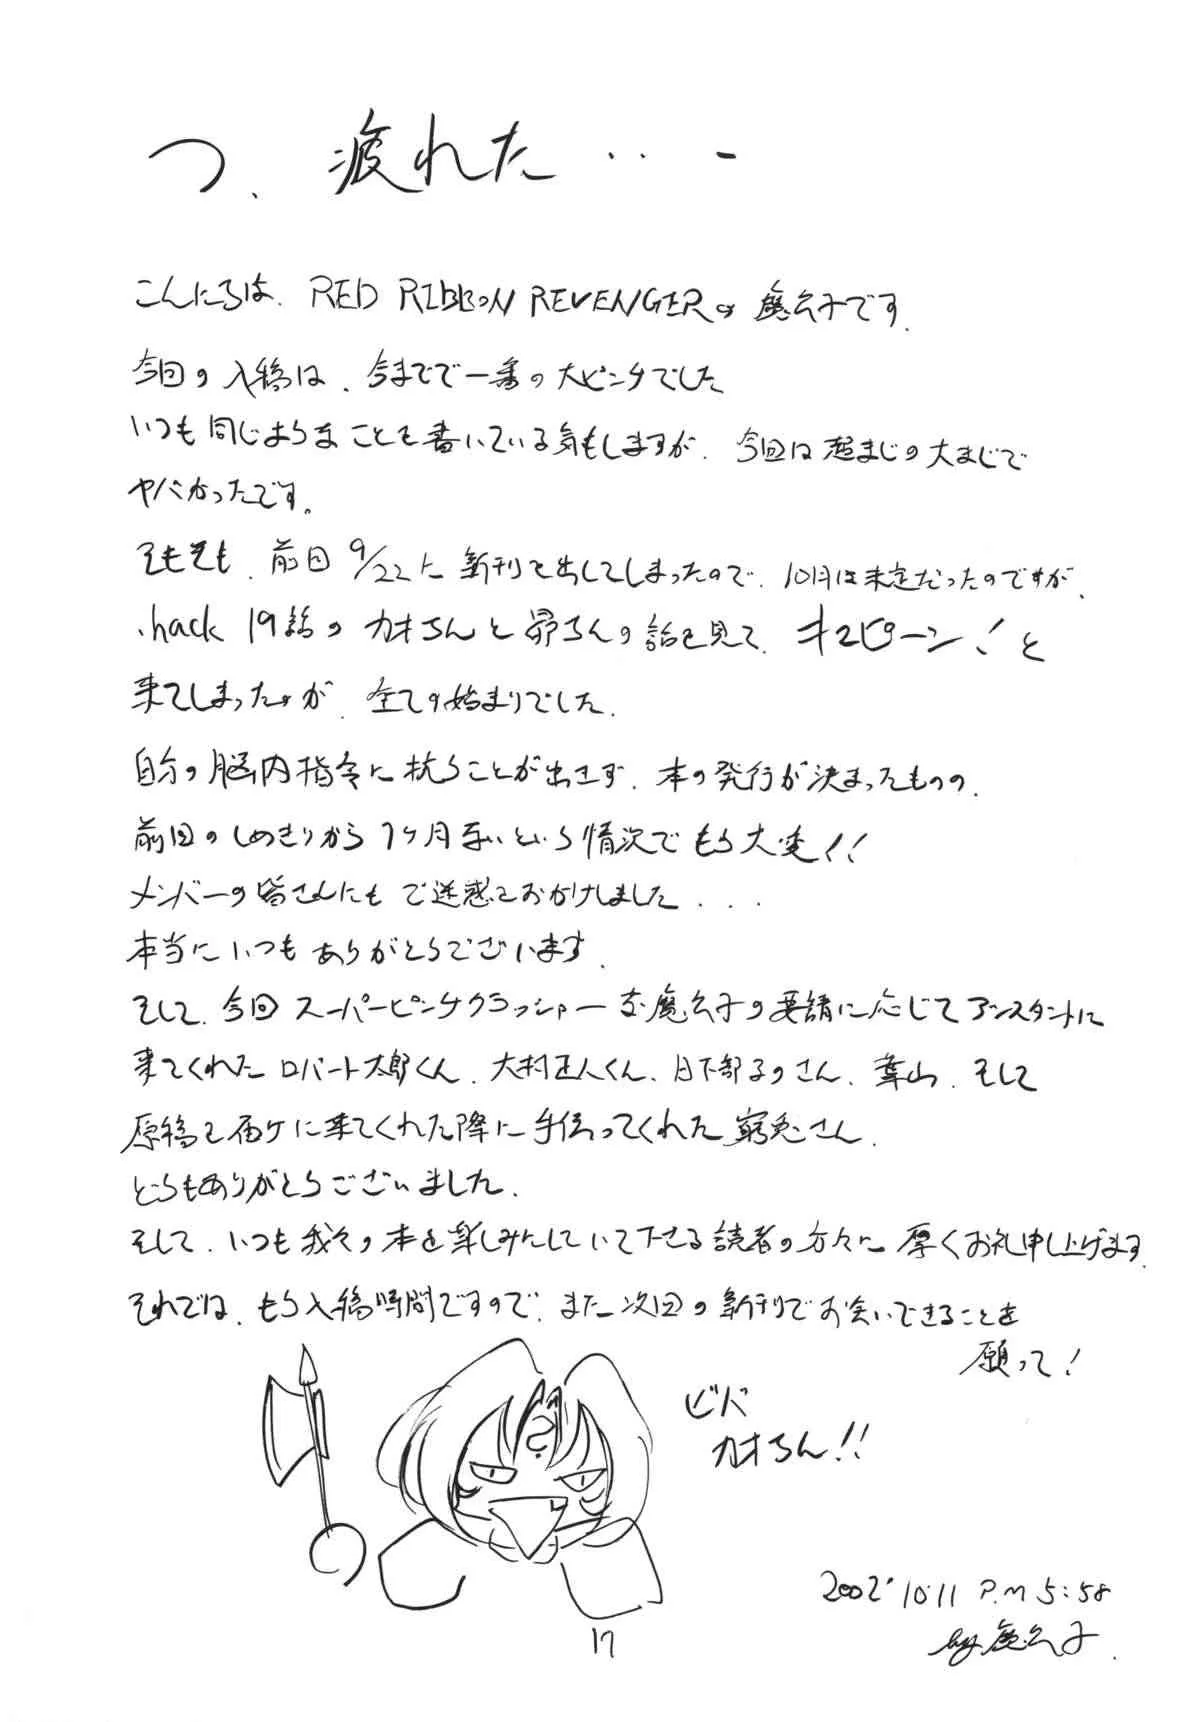 つ、疲れた・・・ー
こんにちは、RED RIBBON REVENGERの魔公子です。
今回の入稿は、今までで一番の大ピンチでした
いつも同じようなことを書いている気もしますが、今回は超まじの大まじで
ヤバかったです。
そもそも、前回9/22に新刊を出してしまったので、10月は未定だったのですが、
.hack 19話のカオちんと昴ちんの話を見て、キュピーン!と
来てしまったのが、全ての始まりでした。
自分の脳内指令に抗うことが出きず、本の発行が決まったものの、
前回のしめきりから1ヶ月無いという情況でもう大変!!
メンバーの皆さんにもご迷惑をおかけしました...
本当にいつもありがとうございます。
そして、今回スーパーピンチクラッシャー 魔公子の要請に応じてアシスタントに
来てくれたロバート太郎くん、大村正人くん、日下部るのさん、葉山、そして
原稿を届けに来てくれた際に手伝ってくれた窮兎さん、
どうもありがとうございました。
そして、いつも我々の本を楽しみにしていて下さる読者の方々に厚くお礼申し上げます。
それでは、もう入稿時間ですので、また次回の新刊でお会いできることを
願って!
ビバ
カオちん!!
2002'10.11 P.M 5:58
by 魔公子.
17